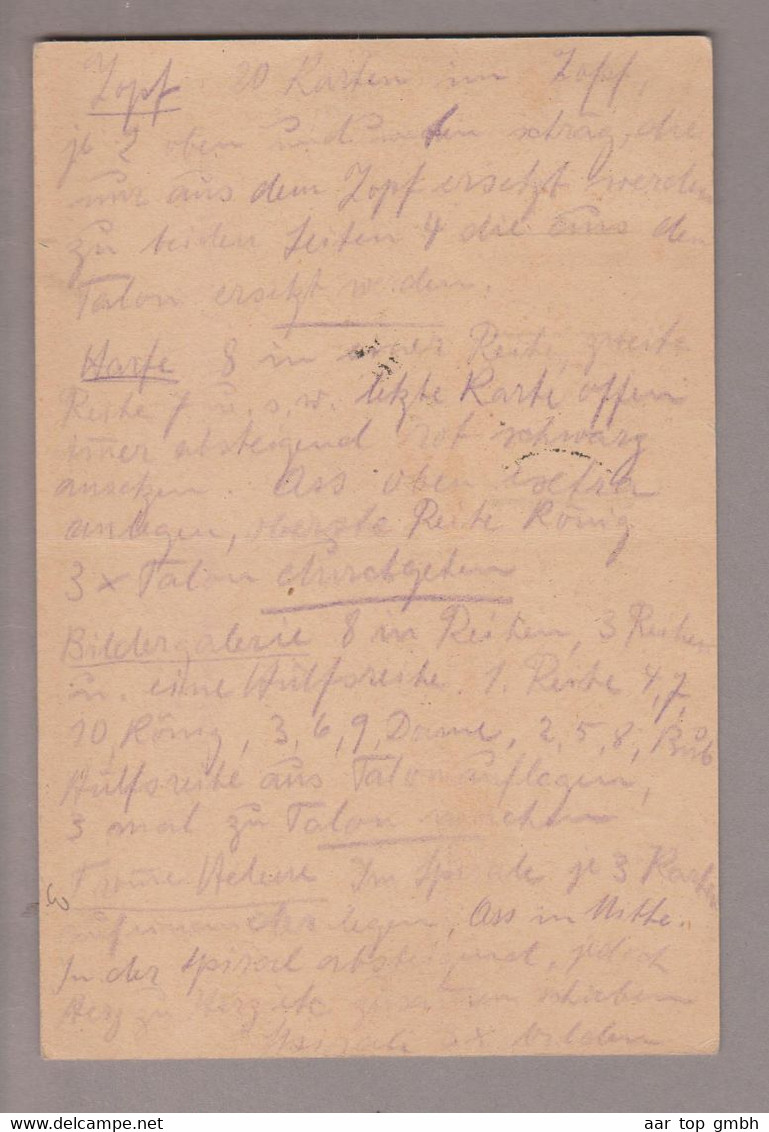 Zopf 20 Karten im Zopf,
je 2 oben und unten schräg, die
nur aus dem Zopf ersetzt werden
zu beiden Seiten 4 die aus den
Talon ersetzt werden.
Harfe 8 in einer Reihe, zweite
Reihe 7 u. s. w. letzte Karte offen
immer absteigend rot schwarz
ansetzen. Ass oben extra
anlegen, oberste Reihe König
3 x Talon durchgehen
Bildergalerie 8 in Reihen, 3 Reihen
u. eine Hülfsreihe. 1. Reihe 4, 7,
10, König, 3, 6, 9, Dame, 2, 5, 8, Bub
Hülfsreihe aus Talon auflegen,
3 mal zu Talon machen
Im Spirale je 3 Karten
legen, Ass in Mitte.
In der Spirale absteigend, jedoch
Herz zu Herz etc zusammen schieben
Spirale 3x bilden
aar top gmbh